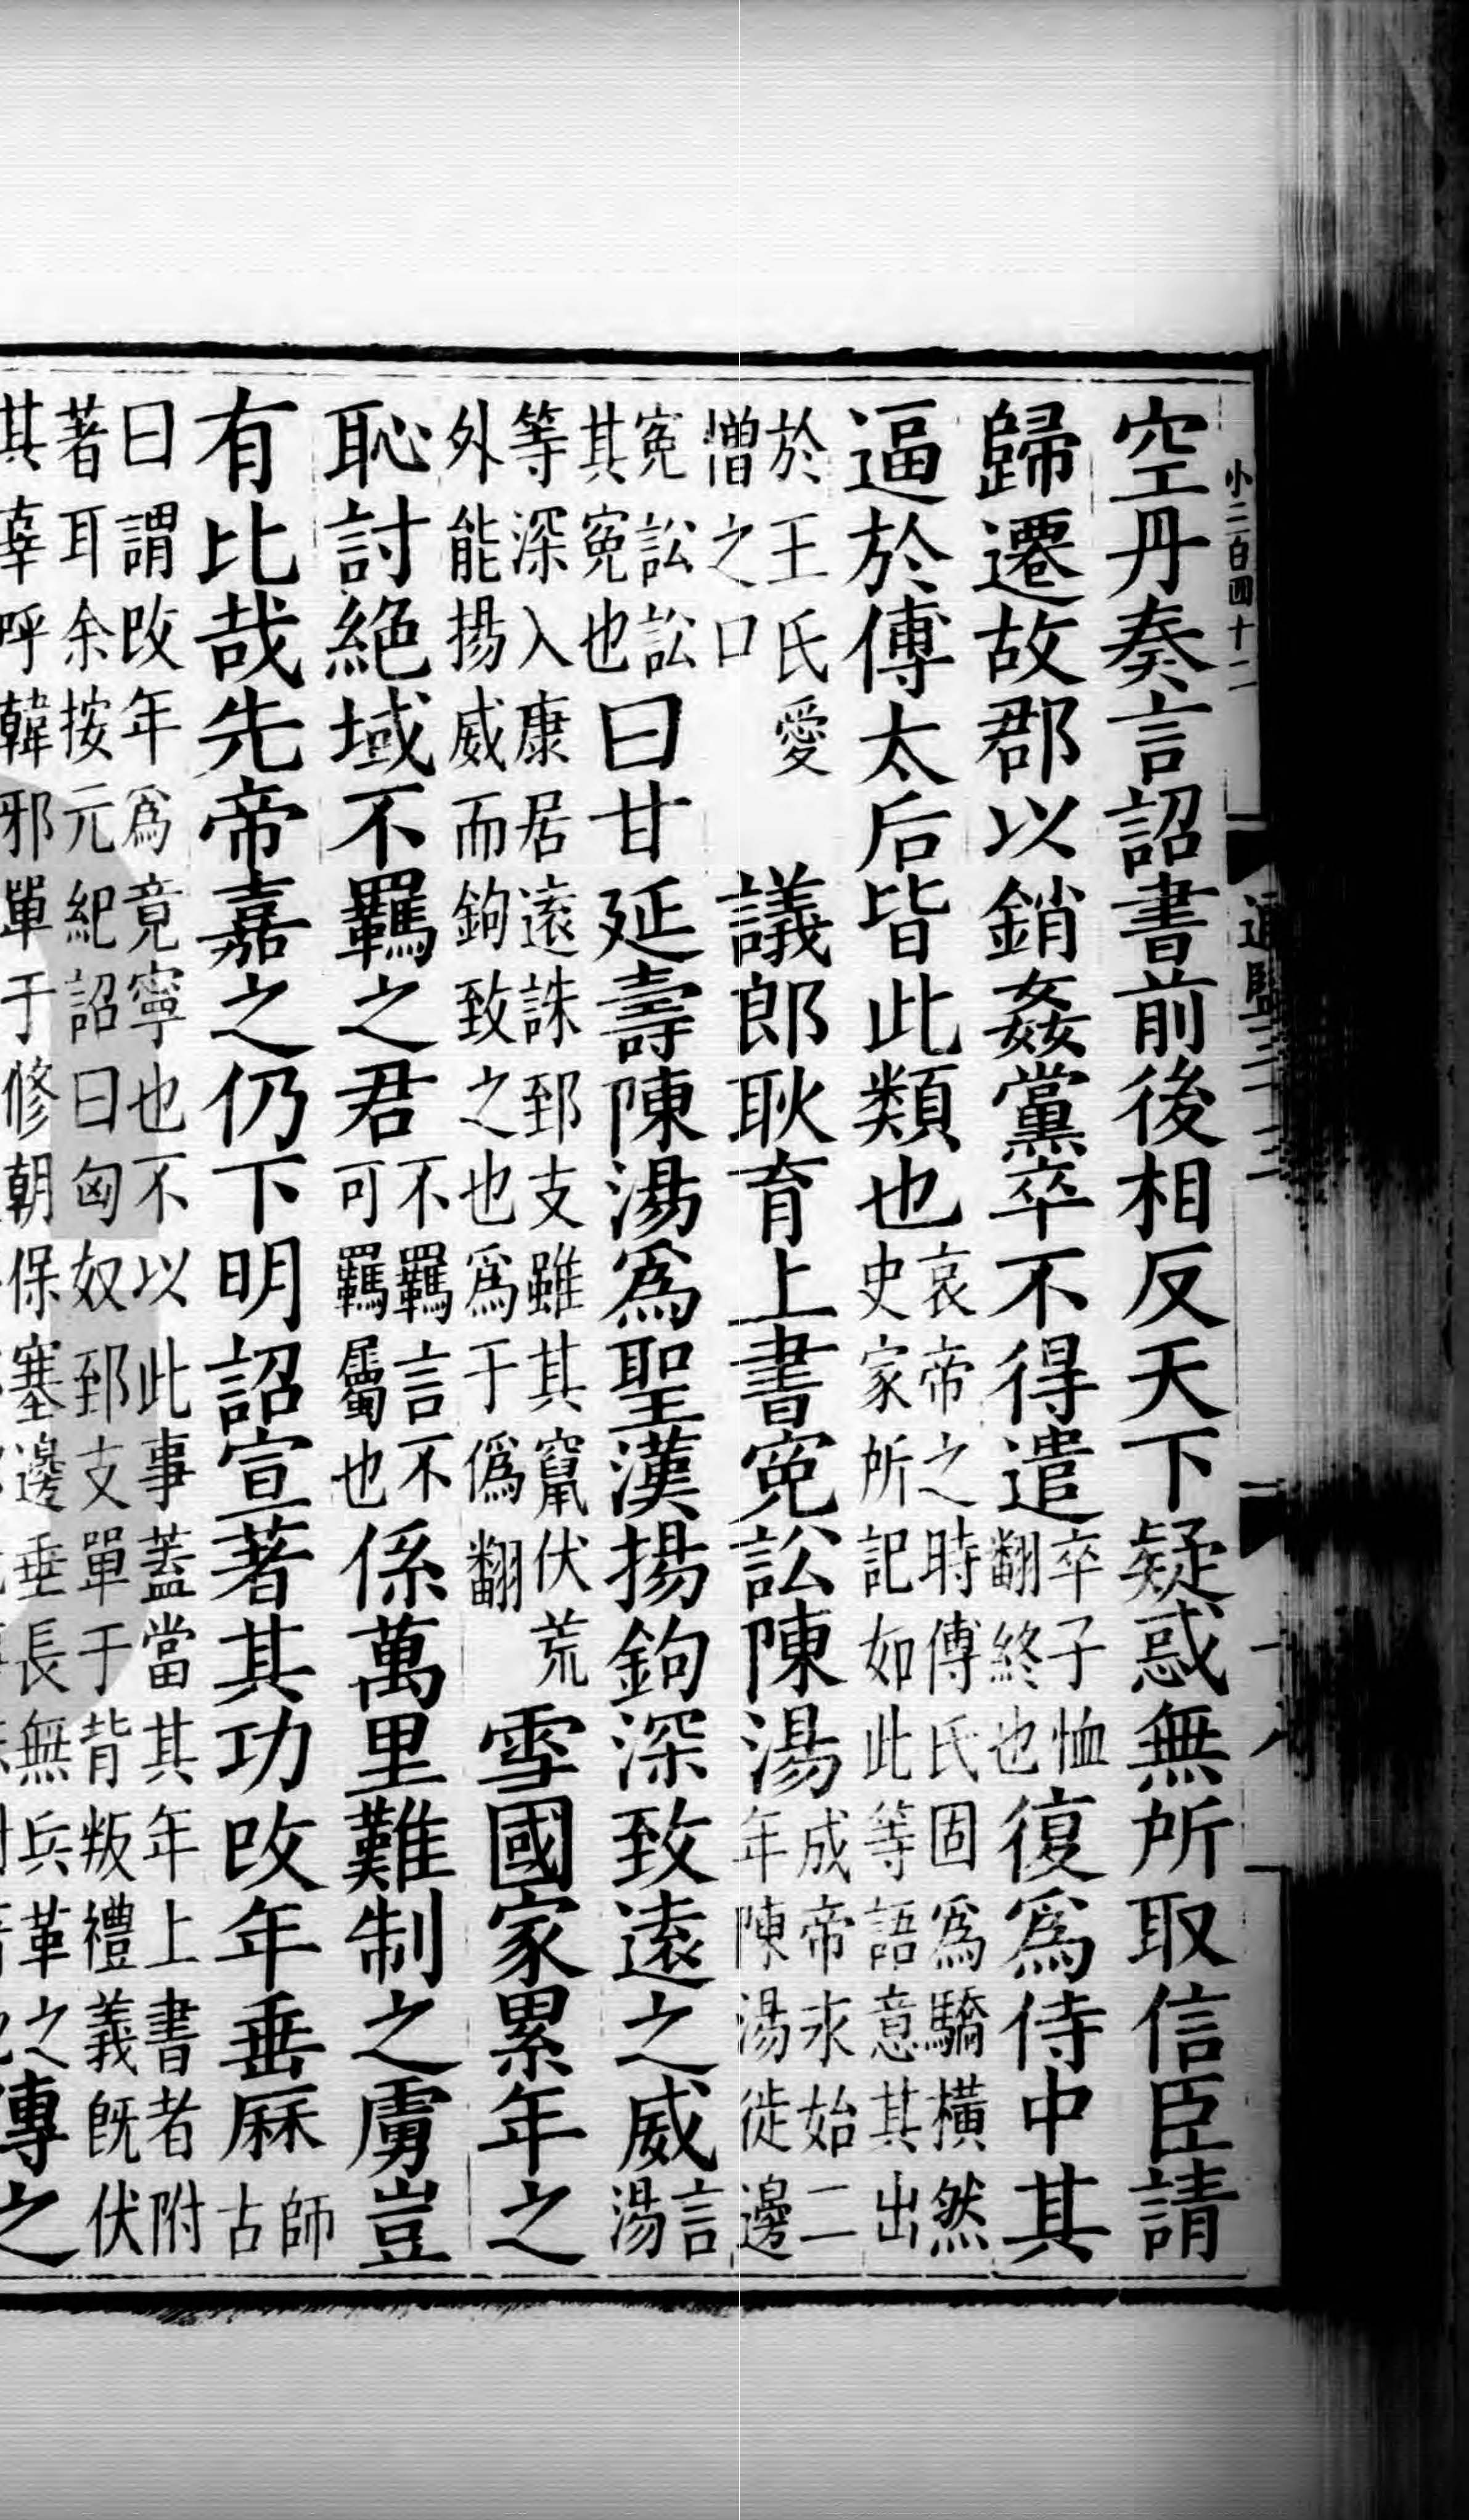 小二百四十二 通鑑三十三 十八
空丹奏言詔書前後相反天下疑惑無所取信臣請
歸遷故郡以銷姦黨卒不得遣卒子恤翻終也復爲侍中其
逼於傅太后皆此類也哀帝之時傅氏固爲驕橫然史家所記如此等語意其出
於王氏愛憎之口議郎耿育上書寃訟陳湯成帝永始二年陳湯徙邊
寃訟訟其寃也曰甘延壽陳湯爲聖漢揚鉤深致遠之威言湯
等深入康居遠誅郅支雖其竄伏荒外能揚威而鉤致之也爲于僞翻雪國家累年之
恥討絶域不羈之君不羈言不可羈屬也係萬里難制之虜豈
有比哉先帝嘉之仍下明詔宣著其功改年垂厤師古
曰謂改年爲竟寧也不以此事蓋當其年上書者附著耳余按元紀詔曰匈奴郅支單于背叛禮義旣伏
其辜呼韓邪單于修朝保塞邊垂長無兵革之傳之